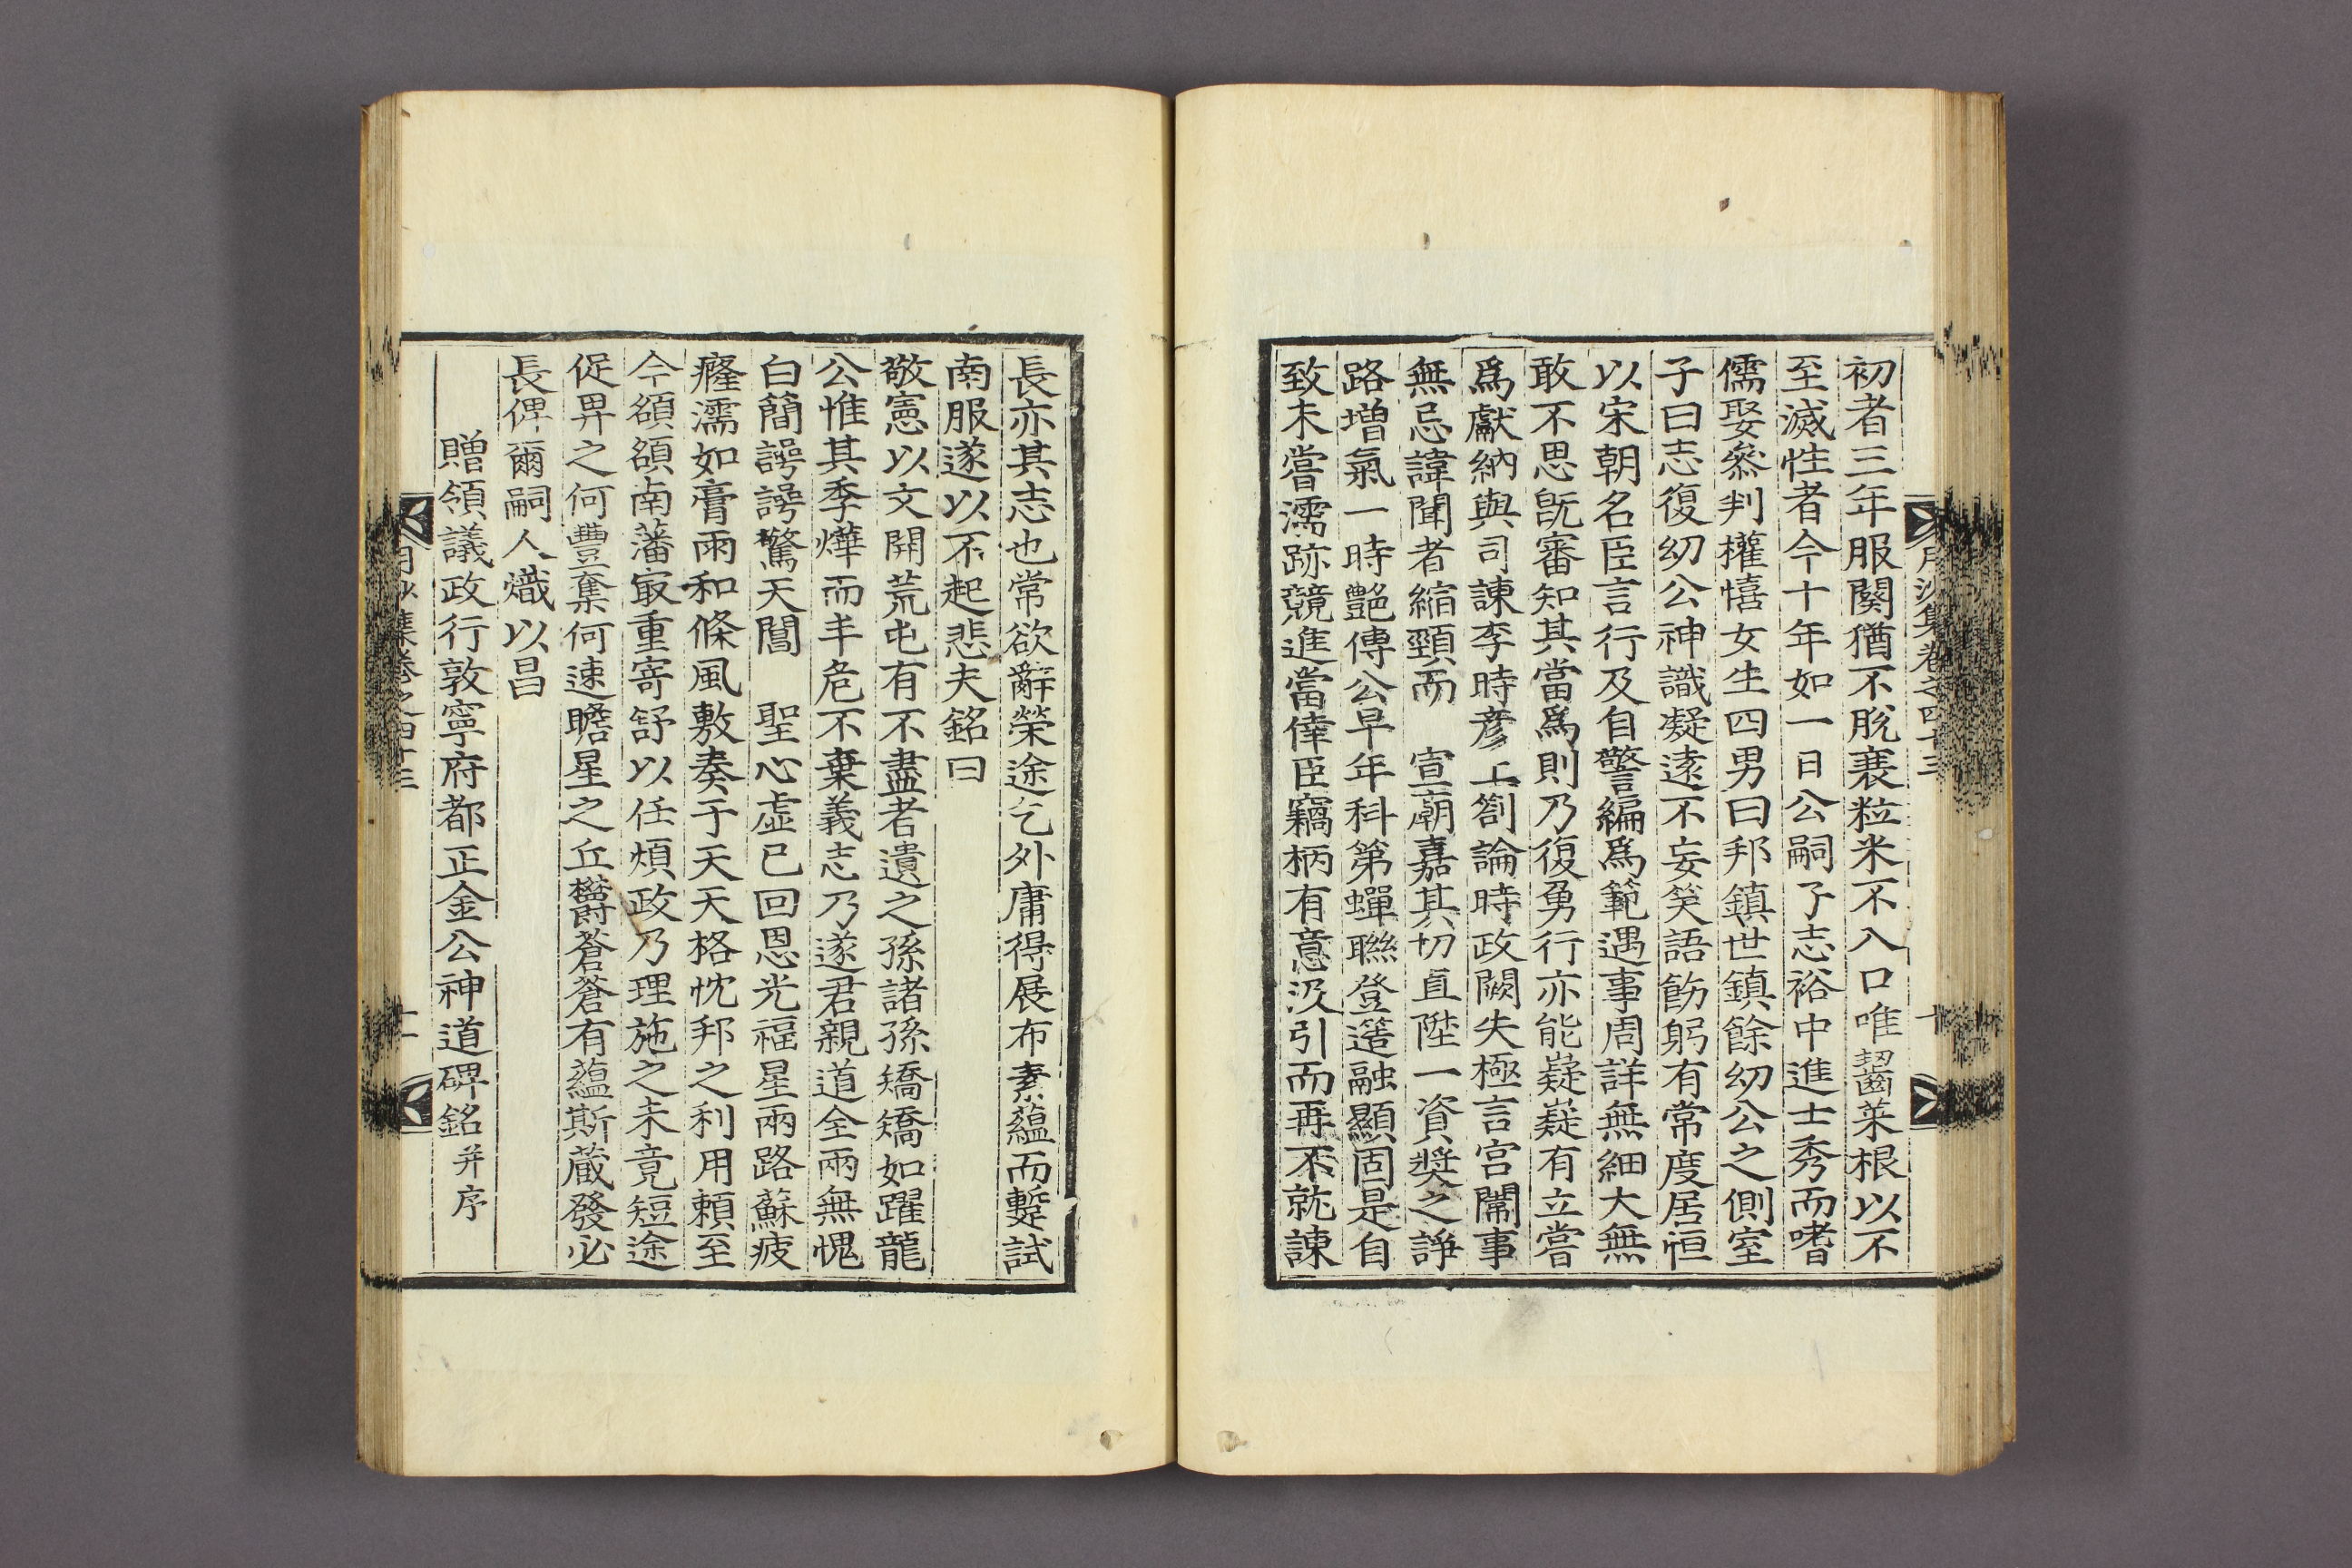 初者三年服闋猶不脫衰粒米不入口唯齧菜根以不
至滅性者今十年如一日公嗣子志裕中進士秀而嗜
儒娶叅判權憘女生四男曰邦鎮世鎮餘幼公之側室
子曰志復幼公神識凝遠不妄笑語飭躬有常度居恒
以宋朝名臣言行及自警編爲範遇事周詳無細大無
敢不思旣審知其當爲則乃復勇行亦能嶷嶷有立嘗
爲獻納與司諫李時彦上劄論時政闕失極言宮闈事
無忌諱聞者縮頸而 宣廟嘉其切直陞一資奬之諍
路增氣一時艶傳公早年科第蟬聯登簉融顯固是自
致未嘗濡跡競進當倖臣竊柄有意汲引而再不就諫
月沙集卷之四十三
十
長亦其志也常欲辭榮途乞外庸得展布素蘊而蹔試
南服遂以不起悲夫銘曰
敬憲以文開荒屯有不盡者遺之孫諸孫矯矯如躍龍
公惟其季燁而丰危不棄義志乃遂君親道全兩無愧
白簡諤諤驚天閽 聖心虛已回恩光福星兩路蘇疲
癃濡如膏雨和條風敷奏于天天格忱邦之利用賴至
今頟頟南藩㝡重寄舒以任煩政乃理施之未竟短途
促畀之何豐奪何速瞻星之丘欝蒼蒼有蘊斯蔵發必
長俾爾嗣人熾以昌
贈領議政行敦寧府都正金公神道碑銘并序
月沙集卷之四十三
十一